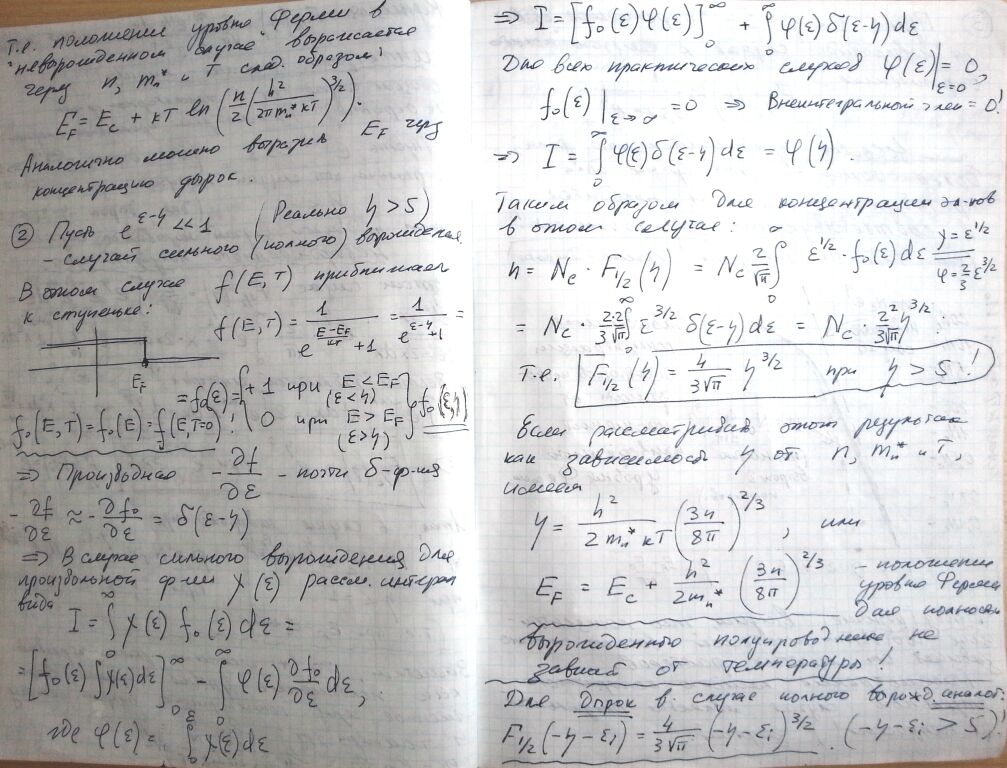 Т.е. положение уровня Ферми в
"невырожденном случае" выражается
через n, mₙ* и T след. образом:
E_F = E_c + kT ln (n/2 (h²/(2πmₙ* kT))^{3/2}).
Аналогично можно выразив E_F через
концентрацию дырок.
② Пусть e^{ε-η} << 1 (Реально η > 5)
- случай сильного (полного) вырождения.
В этом случае f(E,T) приближает
к ступеньке:
f(E,T) = 1/(e^{(E-E_F)/kT} + 1) = 1/(e^{ε-η} + 1) =
E_F
= f₀(ε) = { +1 при E < E_F (ε < η)
0 при E > E_F (ε > η) } f₀(ε,η)
f₀(E,T) = f₀(E) = f(E,T=0) !
⇒ Производная -∂f/∂ε - почти δ-ф-ия
-∂f/∂ε ≈ -∂f₀/∂ε = δ(ε-η)
⇒ В случае сильного вырождения для
произвольной ф-ии χ(ε) рассм. интеграл
вида
I = ∫₀^∞ χ(ε) f₀(ε) dε =
= [f₀(ε) ∫χ(ε)dε]₀^∞ - ∫₀^∞ φ(ε) ∂f₀/∂ε dε,
где φ(ε) = ∫₀^ε χ(ε)dε
⇒ I = [f₀(ε)φ(ε)]₀^∞ + ∫₀^∞ φ(ε) δ(ε-η) dε
Для всех практических случаев φ(ε)|_{ε=0} = 0,
f₀(ε)|_{ε→∞} = 0 ⇒ Внеинтегральный член = 0!
⇒ I = ∫₀^∞ φ(ε) δ(ε-η) dε = φ(η).
Таким образом для концентрации эл-нов
в этом случае:
n = N_c · F_{1/2}(η) = N_c 2/√π ∫₀^∞ ε^{1/2} · f₀(ε) dε = χ = ε^{1/2} φ = 2/3 ε^{3/2}
= N_c 2·2/(3√π) ∫₀^∞ ε^{3/2} δ(ε-η) dε = N_c 2²/(3√π) η^{3/2};
Т.е. F_{1/2}(η) = 4/(3√π) η^{3/2} при η > 5 !
Если рассматривать этот результат
как зависимость η от n, mₙ* и T,
имеем
η = h²/(2mₙ* kT) (3n/8π)^{2/3}, или
E_F = E_c + h²/(2mₙ*) (3n/8π)^{2/3} - положение
уровня Ферми
для полностью
вырожденного полупроводника не
зависит от температуры!
Для Дырок в случае полного вырожд. аналог.
F_{1/2}(-η-ε_i) = 4/(3√π) (-η-ε_i)^{3/2}. (-η-ε_i > 5)!